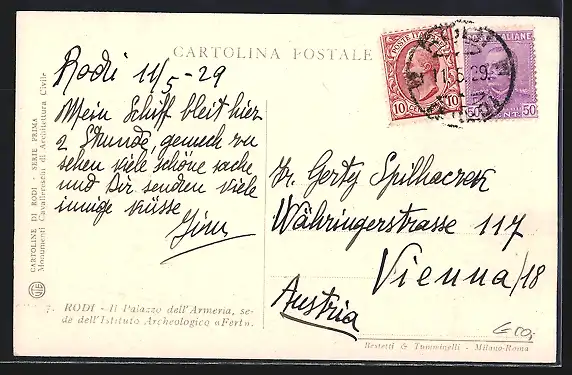 CARTOLINA POSTALE
Rodi 11/5-29
Mein Schiff bleit hier
2 Stunde, genuch zu
sehen viele schöne sache
und Dir senden viele
innige küsse
Jim
Gerty Spilhaczek
Währingerstrasse 117
Vienna/18
Austria
POSTE ITALIANE
10 CENT 10
ITALIANE
50 CENT. 50
CARTOLINE DI RODI - SERIE PRIMA
Monumenti Cavallereschi di Architettura Civile
7. RODI - Il Palazzo dell'Armeria, se-
de dell'Istituto Archeologico «Fert».
Bestetti & Tumminelli - Milano-Roma